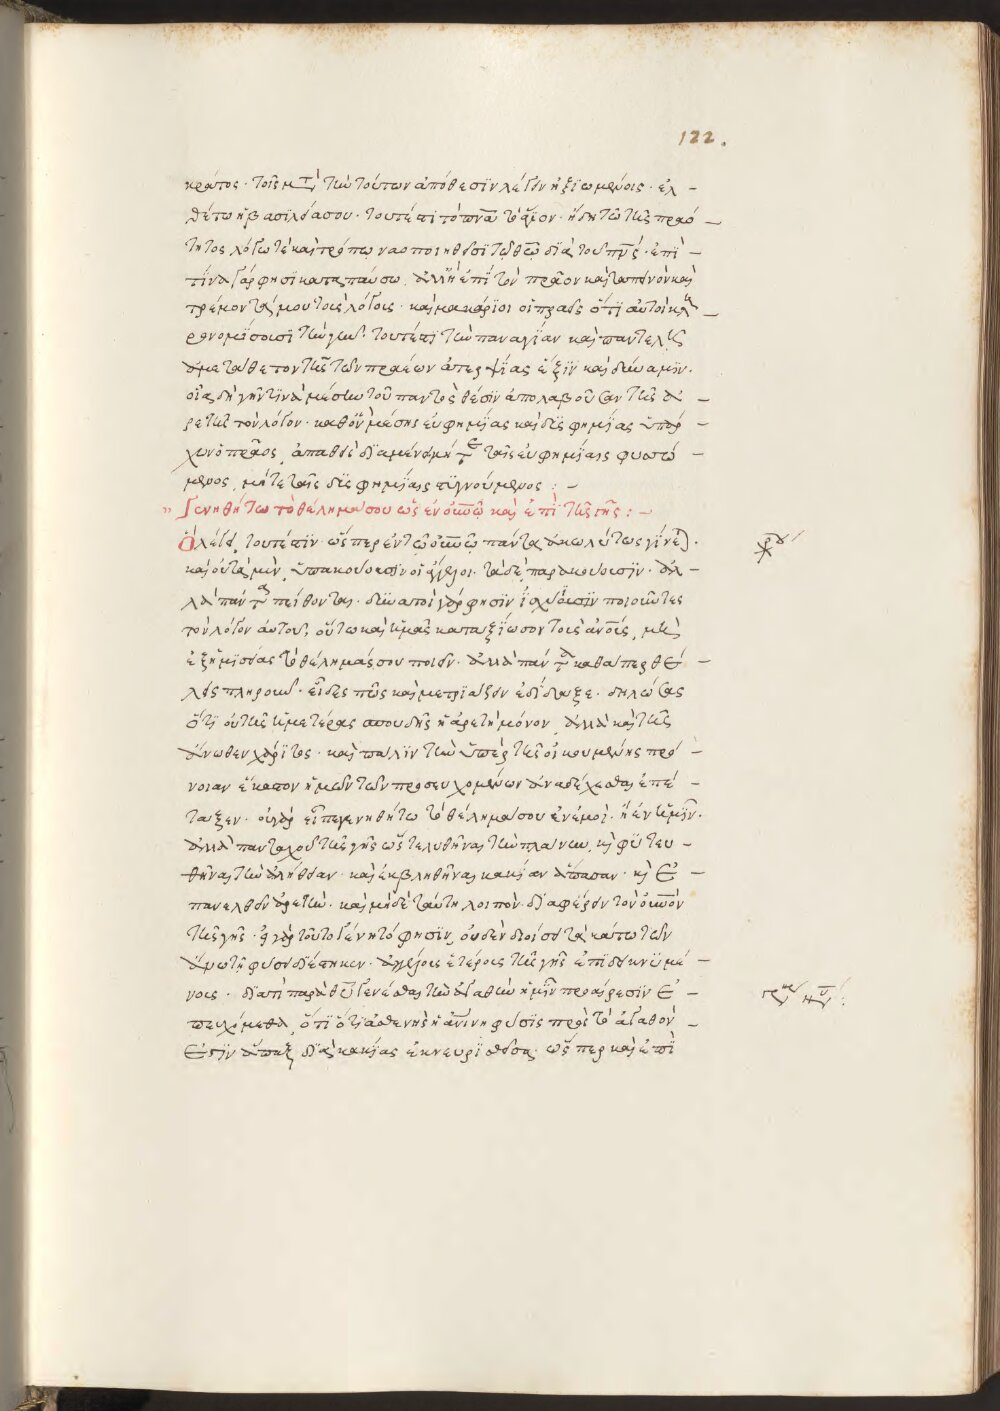 122.
κράτος· τοῖς μετὰ τὴν τούτων ἀπόθεσϊν λέγϊν ἠξϊωμένοις· ἐλ
θέτω ἡ βασιλεία σου· τουτέστι τὸ πνα τὸ ἅγιον· ἤδη τῶ τῆς πραό
τητος λόγω τὲ καὶ τρόπω ναοποιηθεῖσϊ τῶ θῶ διὰ τοῦ πνς· ἐπὶ
τίνα γάρ φησι καταπαύσω, ἀλλ' ἢ ἐπὶ τὸν πρᾶον καὶ ταπεινὸν καὶ
τρέμοντά μου τοὺς λόγους· καὶ μακάριοι οἱ πραεῖς ὅτϊ αὐτοὶ κλη
ρονομήσουσϊ τὴν γῆν· τουτέστι τὴν παναγίαν καὶ παντελῶς
ἀμετάθετον τῆς τῶν πραέων ἕξϊν καὶ δύναμιν·
οἷα δὴ γῆν τϊνὰ μέσην τοῦ παντὸς θέσϊν ἀπολαβοῦσαν τῆς ἀ
ρετῆς τὸν λόγον· καθ' ὃν μέσης εὐφημίας καὶ δυσφημίας ὑπάρ
χων ὁ πρᾶος, ἀπαθὴς διαμένει· μήτε ταῖς εὐφημίαις φυσιό
μενος, μήτε ταῖς δυσφημίαις στυγνούμενος: –
Γενηθήτω τὸ θέλημα σου ὡς ἐν οὐνῶ καὶ ἐπὶ τῆς γῆς: –
Ὃ λέγει, τουτέστϊν· ὥσπερ ἐν τῶ οὐνῶ πάντα ἀκωλύτως γίνεται·
καὶ οὐ τὰ μὲν, ὑπακούουσϊν οἱ ἄγγελοι· τὰ δὲ, παρακούουσϊν· ἀλ
λὰ πάντα πείθονται· δυνατοὶ γάρ φησϊν ἰσχύϊ ποιοῦντες
τὸν λόγον αὐτοῦ, οὕτω καὶ ἡμᾶς καταξίωσον τοὺς ἀνους, μὴ
ἐξ ἡμισείας τὸ θέλημά σου ποιεῖν· ἀλλὰ πάντα καθάπερ θέ
λεις πληροῦν· εἶδες πῶς καὶ μετριάζειν ἐδίδαξε· δηλώσας
ὅτϊ οὐ τῆς ἡμετέρας σπουδῆς ἡ ἀρετὴ μόνον, ἀλλὰ καὶ τῆς
ἄνωθεν χάριτος· καὶ πάλϊν τὴν ὑπὲρ τῆς οἰκουμένης πρό
νοιαν ἕκαστον ἡμῶν τῶν προσευχομένων ἀναδέχεσθαι ἐπέ
ταξεν· οὐ γὰρ εἶπε γενηθήτω τὸ θέλημα σου ἐν ἐμοὶ· ἢ ἐν ἡμῖν·
ἀλλὰ πανταχοῦ τῆς γῆς ὥστε λυθῆναι τὴν πλάνην, καὶ φυτευ
θῆναι τὴν ἀλήθειαν· καὶ ἐκβληθῆναι κακίαν ἅπασαν· καὶ ἐ
πανελθεῖν ἀρετὴν· καὶ μηδὲ ταύτη λοιπὸν διαφέρειν τὸν οὐνὸν
τῆς γῆς· εἰ γὰρ τοῦτο γένητό φησϊν, οὐδὲν διοίσει τὰ κάτω τῶν
ἄνω τῆ φύσει διέστηκεν· ἀγγέλους ἑτέρους τῆς γῆς ἐπϊδεικνυμέ
νοις· διατί παρὰ θῦ γενέσθαι τὴν ἀγαθὴν ἡμῖν προαίρεσϊν ἐ
πευχόμεθα, ὅτϊ ἀσθενὴς ἡ ἀνινη φύσϊς πρὸς τὸ ἀγαθόν
ἐστϊν ἅπαξ διὰ κακίας ἐκνευρισθεῖσα· ὥσπερ καὶ ἐπὶ